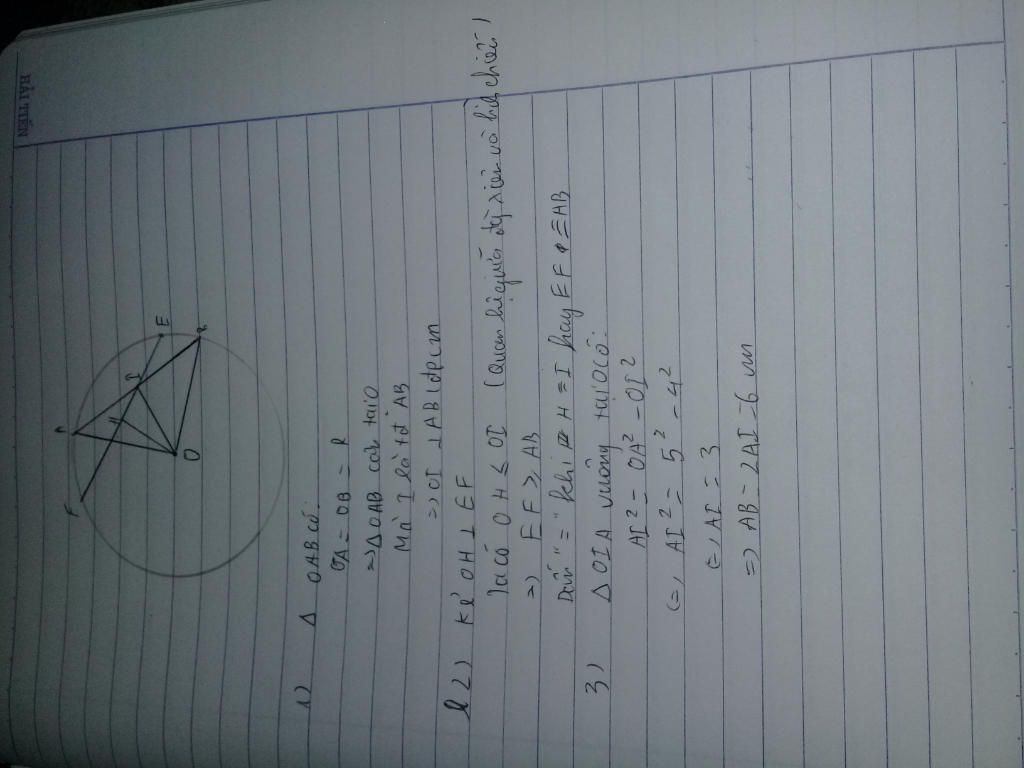 HẢI TIẾN
A
F
H
I
E
B
O
1) Δ OAB có:
OA = OB = R
=> Δ OAB cân tại O
Mà I là tđ AB
=> OI ⊥ AB (đpcm
2) Kẻ OH ⊥ EF
Ta có OH ≤ OI (Quan hệ giữa đg xiên và hình chiếu)
=) EF ≥ AB
Dấu "=" khi H ≡ I hay EF ≡ AB
3) Δ OIA vuông tại I có:
AI² = OA² - OI²
(=, AI² = 5² - 4²
(=, AI = 3
=) AB = 2AI = 6 cm